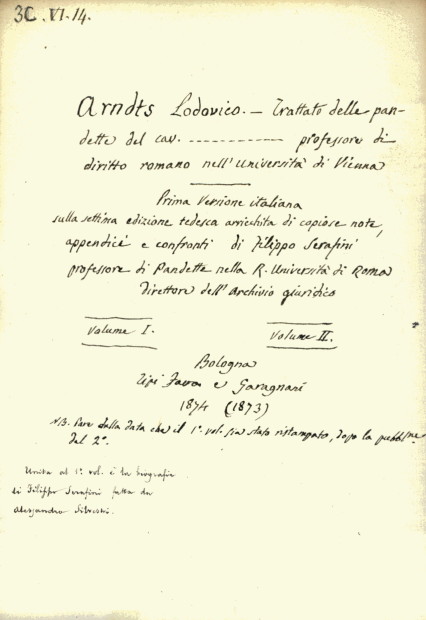 3C.VI.14.
Arndts Lodovico. — Trattato delle pan-
dette del cav. ------------ professore di
diritto romano nell'Università di Vienna
Prima versione italiana
sulla settima edizione tedesca arricchita di copiose note,
appendici e confronti di Filippo Serafini
professore di Pandette nella R. Università di Roma
Direttore dell'Archivio giuridico
Volume I. Volume II.
Bologna
Tipi Fava e Garagnani
1874 (1873)
NB. Pare dalla data che il 1º. vol. sia stato ristampato, dopo la pubblne.
del 2º.
Unita al 1º. vol. è la biografia
di Filippo Serafini fatta da
Alessandro Silvestri.